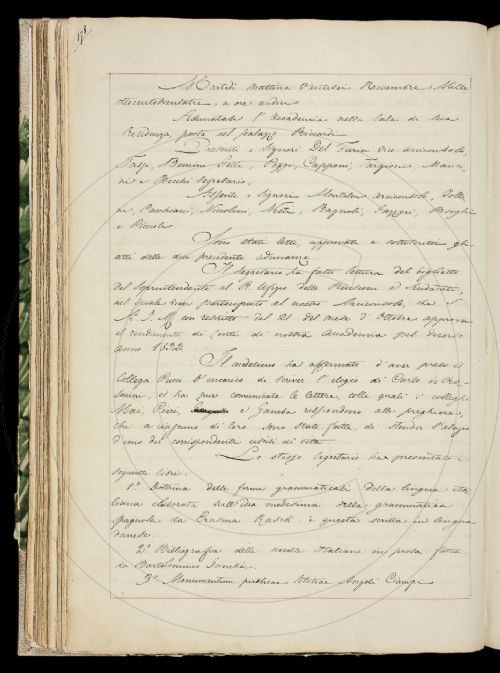 178
Martedì mattina Ventisei Novembre Mille
ottocentotrentatre, a ore undici
Adunatasi l'Accademia nella Sala di sua
Residenza, posta nel palazzo Riccardi
Presenti i Signori Del Furia Vice-arciconsolo,
Capponi, Targioni, Manni-
ni e Becchi Segretario,
Assente i Signori Montalvi arciconsolo, Follini,
Niccolini, Nesti, Bagnoli, Lazzeri, Borghi
e Rincoli
Sono stati letti, approvati e sottoscritti gli
atti delle due precedenti adunanze.
Il Segretario ha fatto lettura del biglietto
del Soprintendente al R. Ufizio delle Revisioni e Sindacati,
nel quale vien partecipato al nostro Arciconsolo, che
S. A. I. R. con rescritto del 21 del mese d'Ottobre approva
il rendimento di Conti di nostra Accademia pel decorso
anno 1832.
Il medesimo ha affermato d'aver preso il
Collega l'incarico di scriver l'elogio di Carlo de' Ros-
smini, ed ha pure comunicate le lettere, colle quali i colleghi
Mai, Peiri, e Gamba respondono alle preghiera,
che a ciascuno di loro sono state fatte, di stender l'elogio
d'uno dei corrispondenti usciti di vita.
Lo stesso Segretario ha presentato i
seguenti libri.
1.° Dottrina delle forme grammaticali della lingua ita-
liana elaborata sull'idea medesima della grammatica
spagnola da Erasmo Rasck: è questa scritta in lingua
danese.
2.° Bibliografia delle novelle Italiane in prosa fatta
da Bartolommeo Gamba.
3.° Monumentum publicae letitiae Angeli Ciampi.